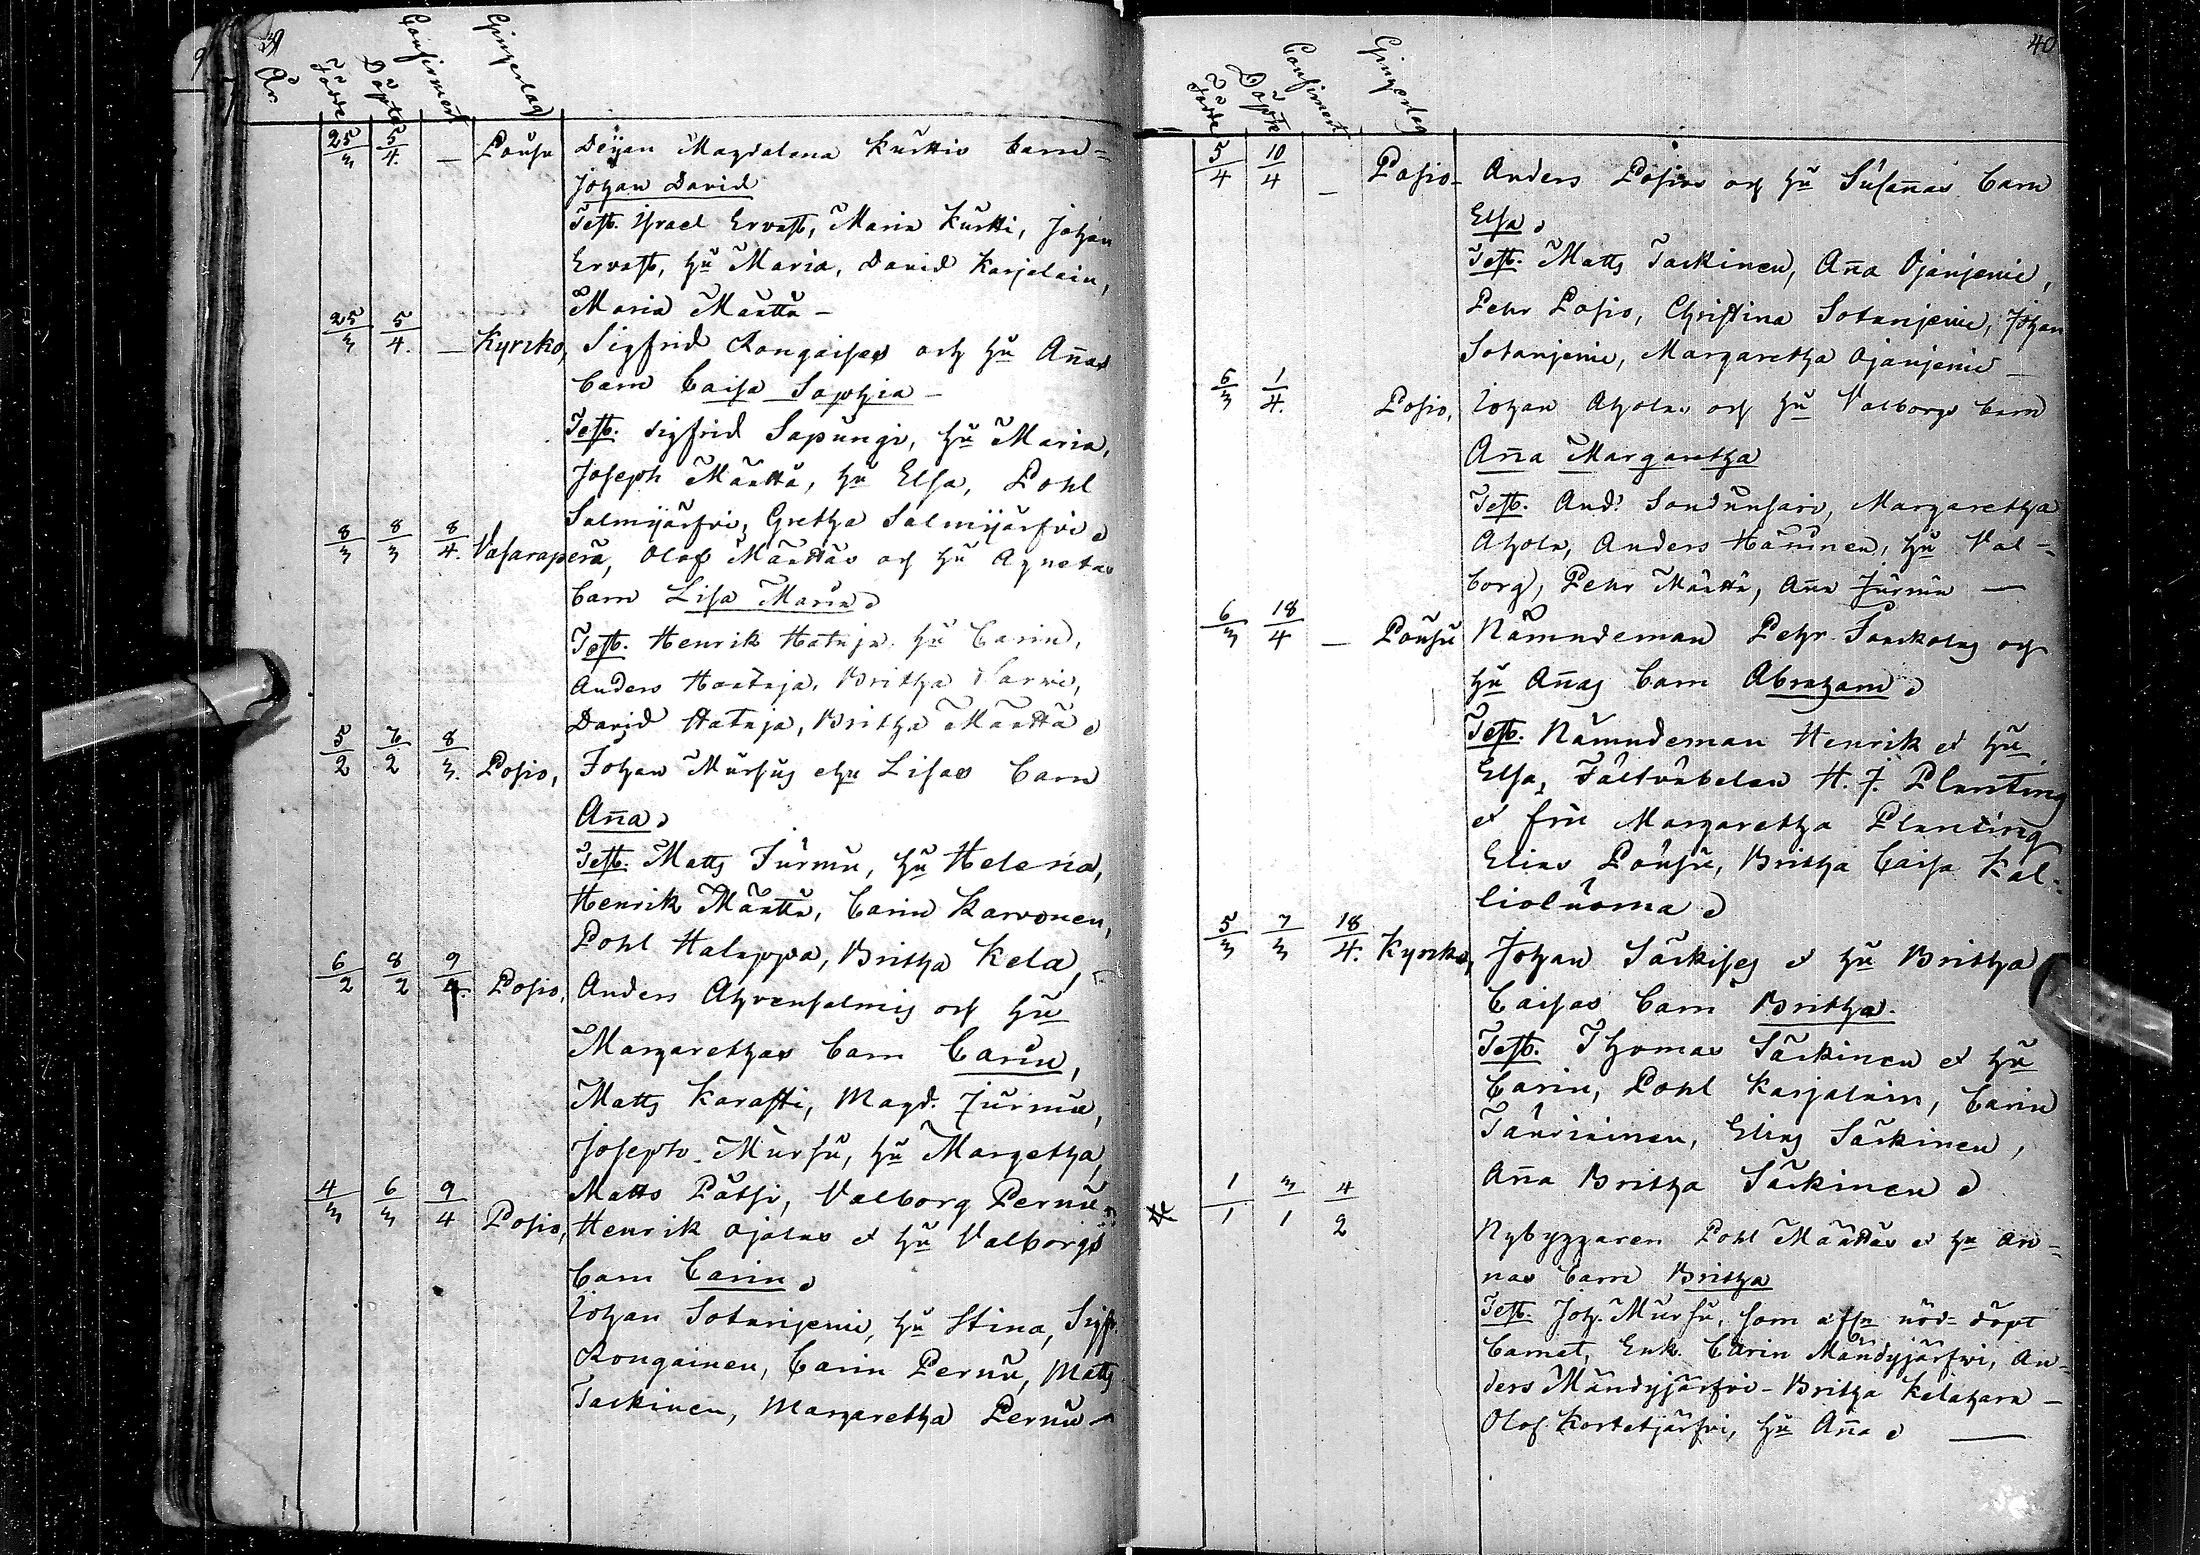 39
År
Födde
Döpte
Confirmert
Gingerlag
25/3 5/4. — Pousu Pigan Magdalena Kurttis barn=
Johan David
Test. Israel Ervast, Maria Kurtti, Johan
Ervast, hu Maria, David Karjalain,
Maria Määttä —
25/3 5/4. — Kyrcko, Sigfrid Kongaises och hu Annas
barn Caisa Sophia —
Test. Sigfrid Sapungi, hu Maria,
Joseph Määttä, hu Elsa, Pohl
Salmijärfvi, Gretha Salmijärfvi
8/3 8/3 8/4. Vasaraperä, Olof Määttäs och hu Agnetas
barn Lisa Maria
Test. Henrik Hataja, hu Carin,
Anders Hoataja, Britha Sarvi,
David Hataja, Britha Määttä
5/2 7/2 8/3. Posio, Johan Mursus e hu Lisas barn
Anna
Test. Matts Jurmu, hu Helena,
Henrik Määttä, Carin Karvonen,
Pohl Halappa, Britha Kela,
6/2 8/2 9/4. Posio, Anders Ahvensalmis och hu
Margarethas barn Carin,
Matts Karasti, Magd. Jurmu,
Joseph Mursu, hu Margetha,
Matts Pätsi, Valborg Pernu
4/3 6/3 9/4 Posio, Henrik Ojalas et hu Valborgs
barn Carin
Johan Sotanjemi, hu Stina, Sigfr.
Kongainen, Carin Pernu, Matts
Tackinen, Margaretha Pernu
40
Födde
Döpte
Confirmert
Gingerlag
5/4 10/4 — Posio — Anders Posios och hu Susannas barn
Elsa
Test. Matts Tackinen, Anna Ojanjemi,
Pehr Posio, Christina Sotanjemi, Johan
Sotanjemi, Margaretha Ojanjemi —
6/3 1/4. Posio, Johan Aholas och hu Valborgs barn
Anna Margaretha
Test. And. Soudunsari, Margaretha
Ahola, Anders Hänninen, hu Val=
borg, Pehr Määttä, Anna Jurmu —
6/3 18/4 — Pousu Nämndeman Pehr Souckolas och
hu Annas barn Abraham
Test. Nämndeman Henrik et hu
Elsa, Fältväbelen H. J. Planting
et fru Margaretha Planting
Elias Pousu, Britha Caisa Kal=
lioluoma
5/3 7/3 18/4. Kyrcko, Johan Säckises et hu Britha
Caisas barn Britha.
Test. Thomas Säckinen et hu
Carin, Pohl Karjalain, Carin
Tauriainen, Elias Säckinen,
Anna Britha Säckinen
1/1 3/1 4/2 Nybyggaren Pohl Määttäs et hu An=
nas barn Britha
Test. Joh. Mursu, som äfn nöd=döpt
barnet, Enk. Carin Mändyjärfvi, An=
ders Mändyjärfvi — Britha Kelahara —
Olof Kortetjärfvi, hu Anna —